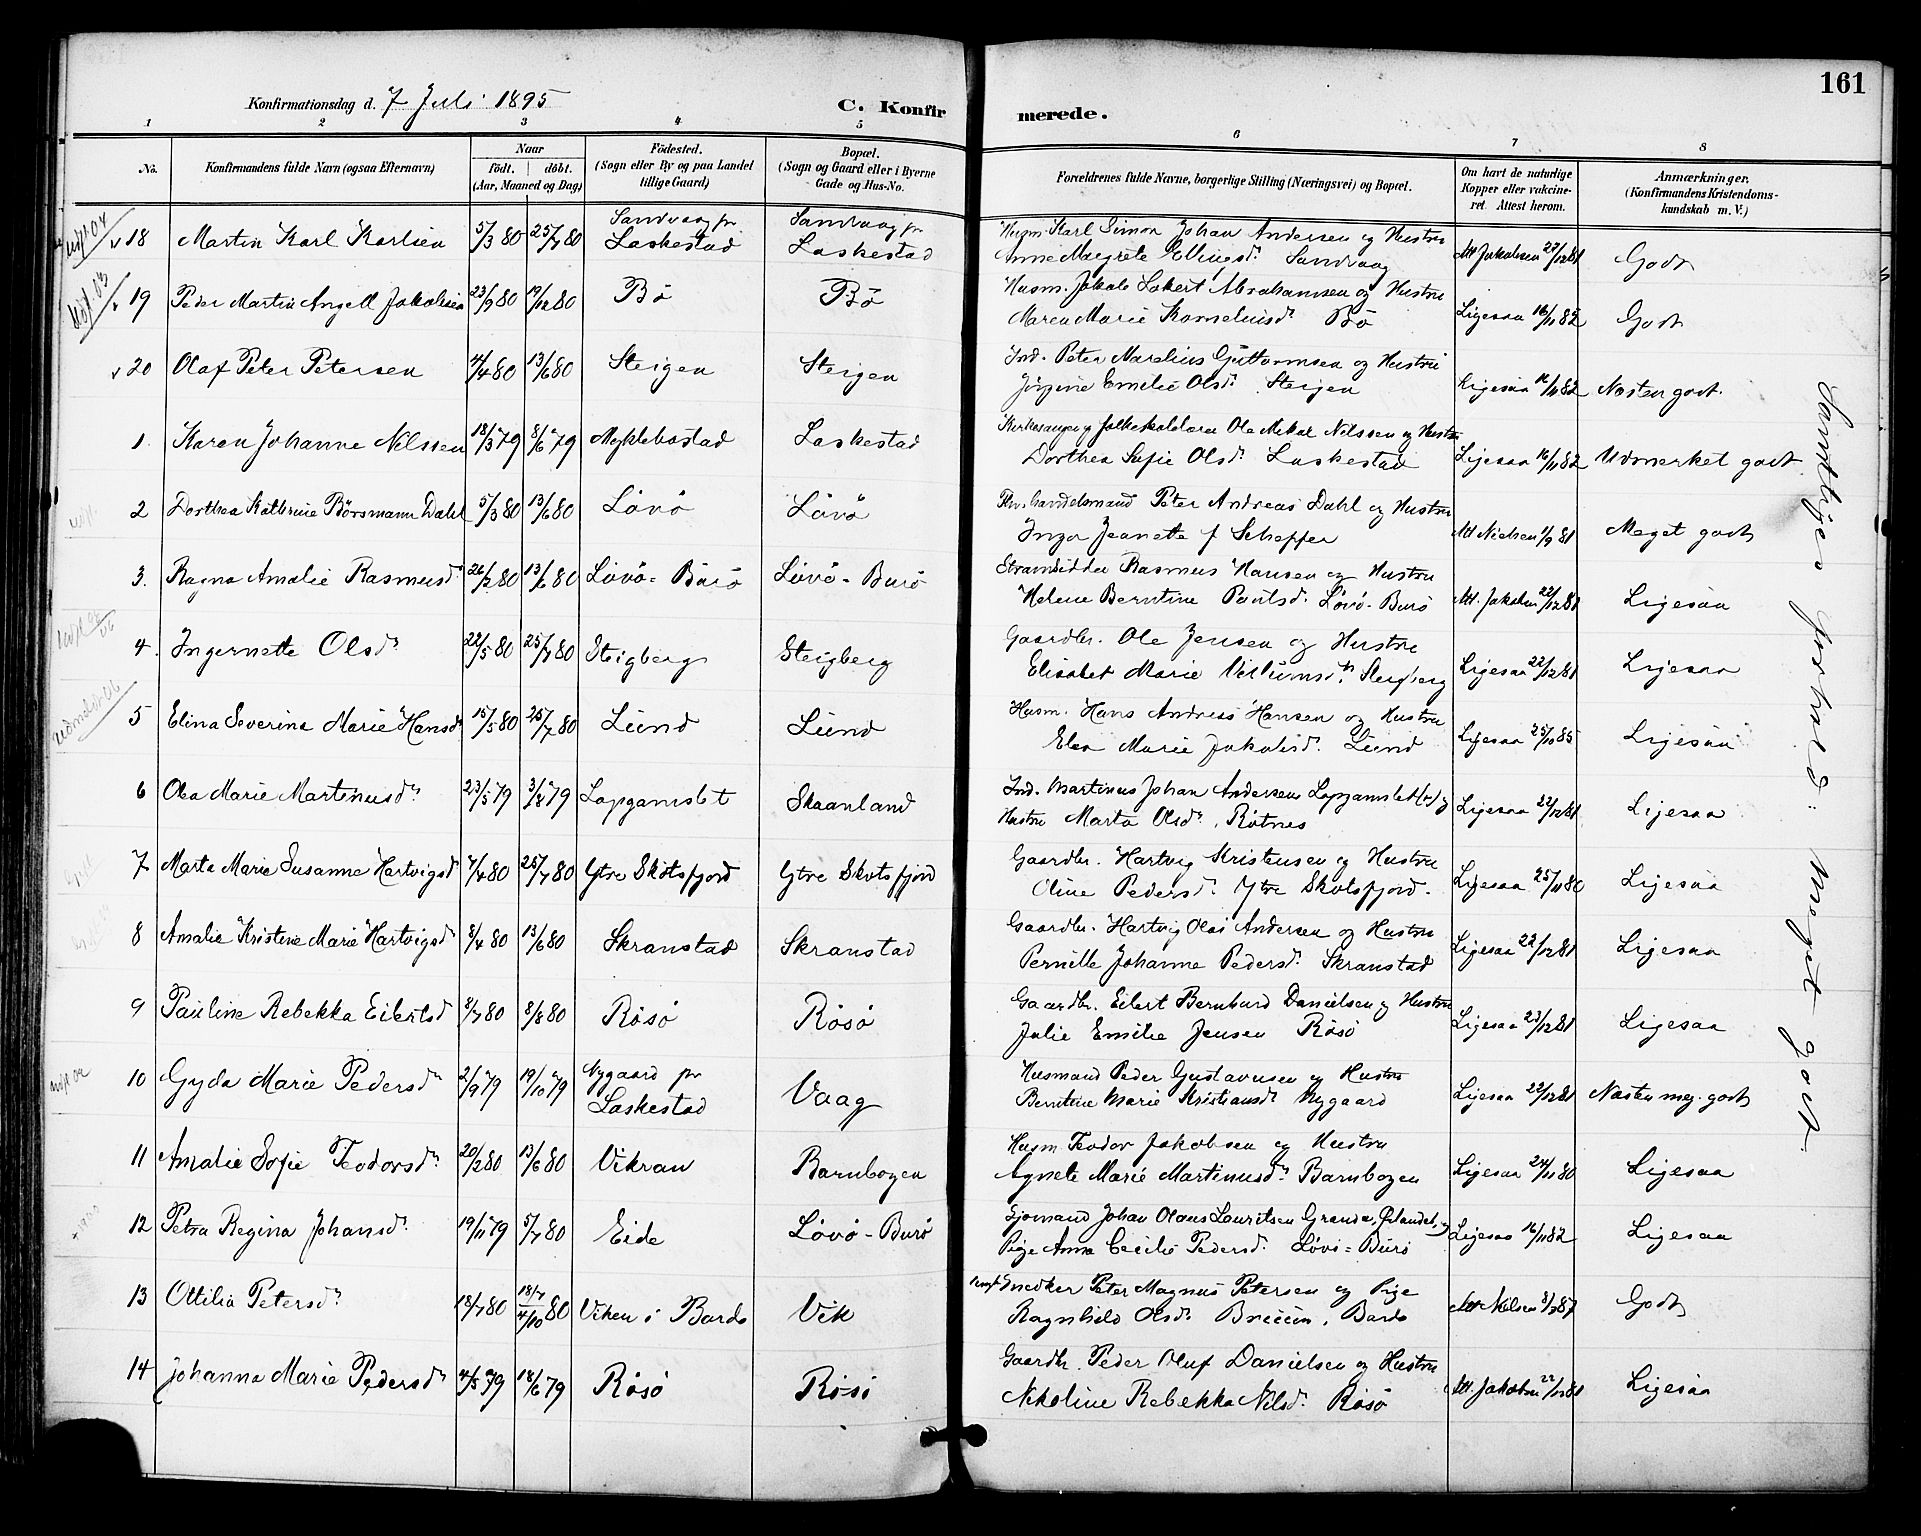 161
Konfirmationsdag d. 7 Juli 1895
C. Konfirmerede.
1 2 3 4 5 6 7 8
No.
Konfirmandens fulde Navn (ogsaa Efternavn)
Naar
født. døbt.
(Aar, Maaned og Dag)
Fødested.
(Sogn eller By og paa Landet
tillige Gaard)
Bopæl.
(Sogn og Gaard eller i Byerne
Gade og Hus-No.
Forældrenes fulde Navne, borgerlige Stilling (Næringsvei) og Bopæl.
Om havt de naturlige
Kopper eller vakcine-
ret. Attest herom.
Anmærkninger.
(Konfirmandens Kristendoms-
kundskab m. V.)
18 Martin Karl Karlsen 5/3 80 25/7 80 Sandvaag pr Laskestad Sandvaag pr Laskestad
Husm. Karl Simon Johan Andersen og Hustru
Anne Margrete Ellingsd. Sandvaag Att Jakobsen 22/12 81 Godt
19 Peder Martin Angell Jakobsen 23/9 80 19/12 80 Bö Bö
Husm. Jakob Lokert Abrahamsen og Hustru
Maren Marie Korneliusd. Bö Ligesaa 16/11 82 Godt
20 Olaf Peter Petersen 4/4 80 13/6 80 Steigen Steigen
Ind. Peter Marelius Guttormsen og Hustru
Jörgine Emilie Olsd. Steigen Ligesaa 16/11 82 Næsten godt.
1. Karen Johanne Nilssen 18/3 79 8/6 79 Myklebostad Laskestad
Kirkesanger og Folkeskolelærer Ole Mikal Nilssen og Hustru
Dorthea Sofie Olsd. Laskestad Ligesaa 16/11 82 Udmerket godt
2 Dorthea Kathrine Börsmann Dahl 5/3 80 13/6 80 Lövö Lövö
Fhv. handelsmand Peter Andreas Dahl og Hustru
Inger Jeanette f Scheffer Att Nielsen 1/9 81 Meget godt
3. Ragna Amalie Rasmusd. 26/2 80 13/6 80 Lövö-Burö Lövö-Burö
Strandsidder Rasmus Hansen og Hustru
Helene Berntine Paulsd. Lövö-Burö Att. Jakobsen 22/12 81 Ligesaa
4. Ingernette Olsd. 22/5 80 25/7 80 Steigberg Steigberg
Gaardbr. Ole Jensen og Hustru
Elisabet Marie Steigberg Ligesaa 22/12 81 Ligesaa
5 Elina Severine Marie Hansd. 15/5 80 25/7 80 Lund Lund
Husm. Hans Andreas Hansen og Hustru
Elen Marie Jakobsd. Lund Ligesaa 25/10 85 Ligesaa
6 Olea Marie Martinusd. 23/5 79 3/8 79 Lapgamslet Skaanland
Ind. Martinus Johan Andersen Lapgamslet og
Hustru Marta Olsd. Rötnes Ligesaa 22/12 81 Ligesaa
7 Marta Marie Susanne Hartvigsd 7/4 80 25/7 80 Ytre Skotsfjord Ytre Skotsfjord
Gaardbr. Hartvig Kristensen og Hustru
Oline Pedersd. Ytre Skotsfjord. Ligesaa 25/11 80 Ligesaa
8 Amalie Kristine Marie Hartvigsd 8/4 80 13/6 80 Skranstad Skranstad
Gaardbr. Hartvig Olai Andersen og Hustru
Pernille Johanne Pedersd. Skranstad Ligesaa 22/12 81 Ligesaa
9 Pauline Rebekka Eilertsd 8/7 80 8/8 80 Rösö Rösö
Gaardbr. Eilert Bernhard Danielsen og Hustru
Julie Emilie Jensen Rösö Ligesaa 23/12 81 Ligesaa
10 Gyda Marie Pedersd. 2/9 79 19/10 79 Nygaard pr Laskestad Vaag
Husmand Peder Gustavusen og Hustru
Berntine Marie Kristiansd. Nygaard Ligesaa 22/12 81 Næsten meg. godt
11 Amalie Sofie Teodorsd. 20/2 80 13/6 80 Vikran Barnbogen
Husm Teodor Jakobsen og Hustru
Agnete Marie Martinusd. Barnbogen Ligesaa 24/11 80 Ligesaa
12 Petra Regina Johansd. 19/11 79 5/7 80 Eide Lövö-Burö
Sjömand Johan Olaus Lauritsen Grande, Örlandet, og
Pige Anna Cecilie Pedersd. Lövö-Burö Ligesaa 16/11 82 Ligesaa
13 Ottilia Petersd. 18/7 80 18/7 4/10 80 Viken i Bardo Vik
Snedker Peter Magnus Petersen og Pige
Ragnhild Olsd. Bardo Att Nilsen 3/7 87 Godt
14 Johanna Marie Pedersd. 4/5 79 18/6 79 Rösö Rösö
Gaardbr. Peder Oluf Danielsen og Hustru
Nikoline Rebekka Nilsd. Rösö Att. Jakobsen 22/12 81 Ligesaa
Samtliges forhold: meget godt.